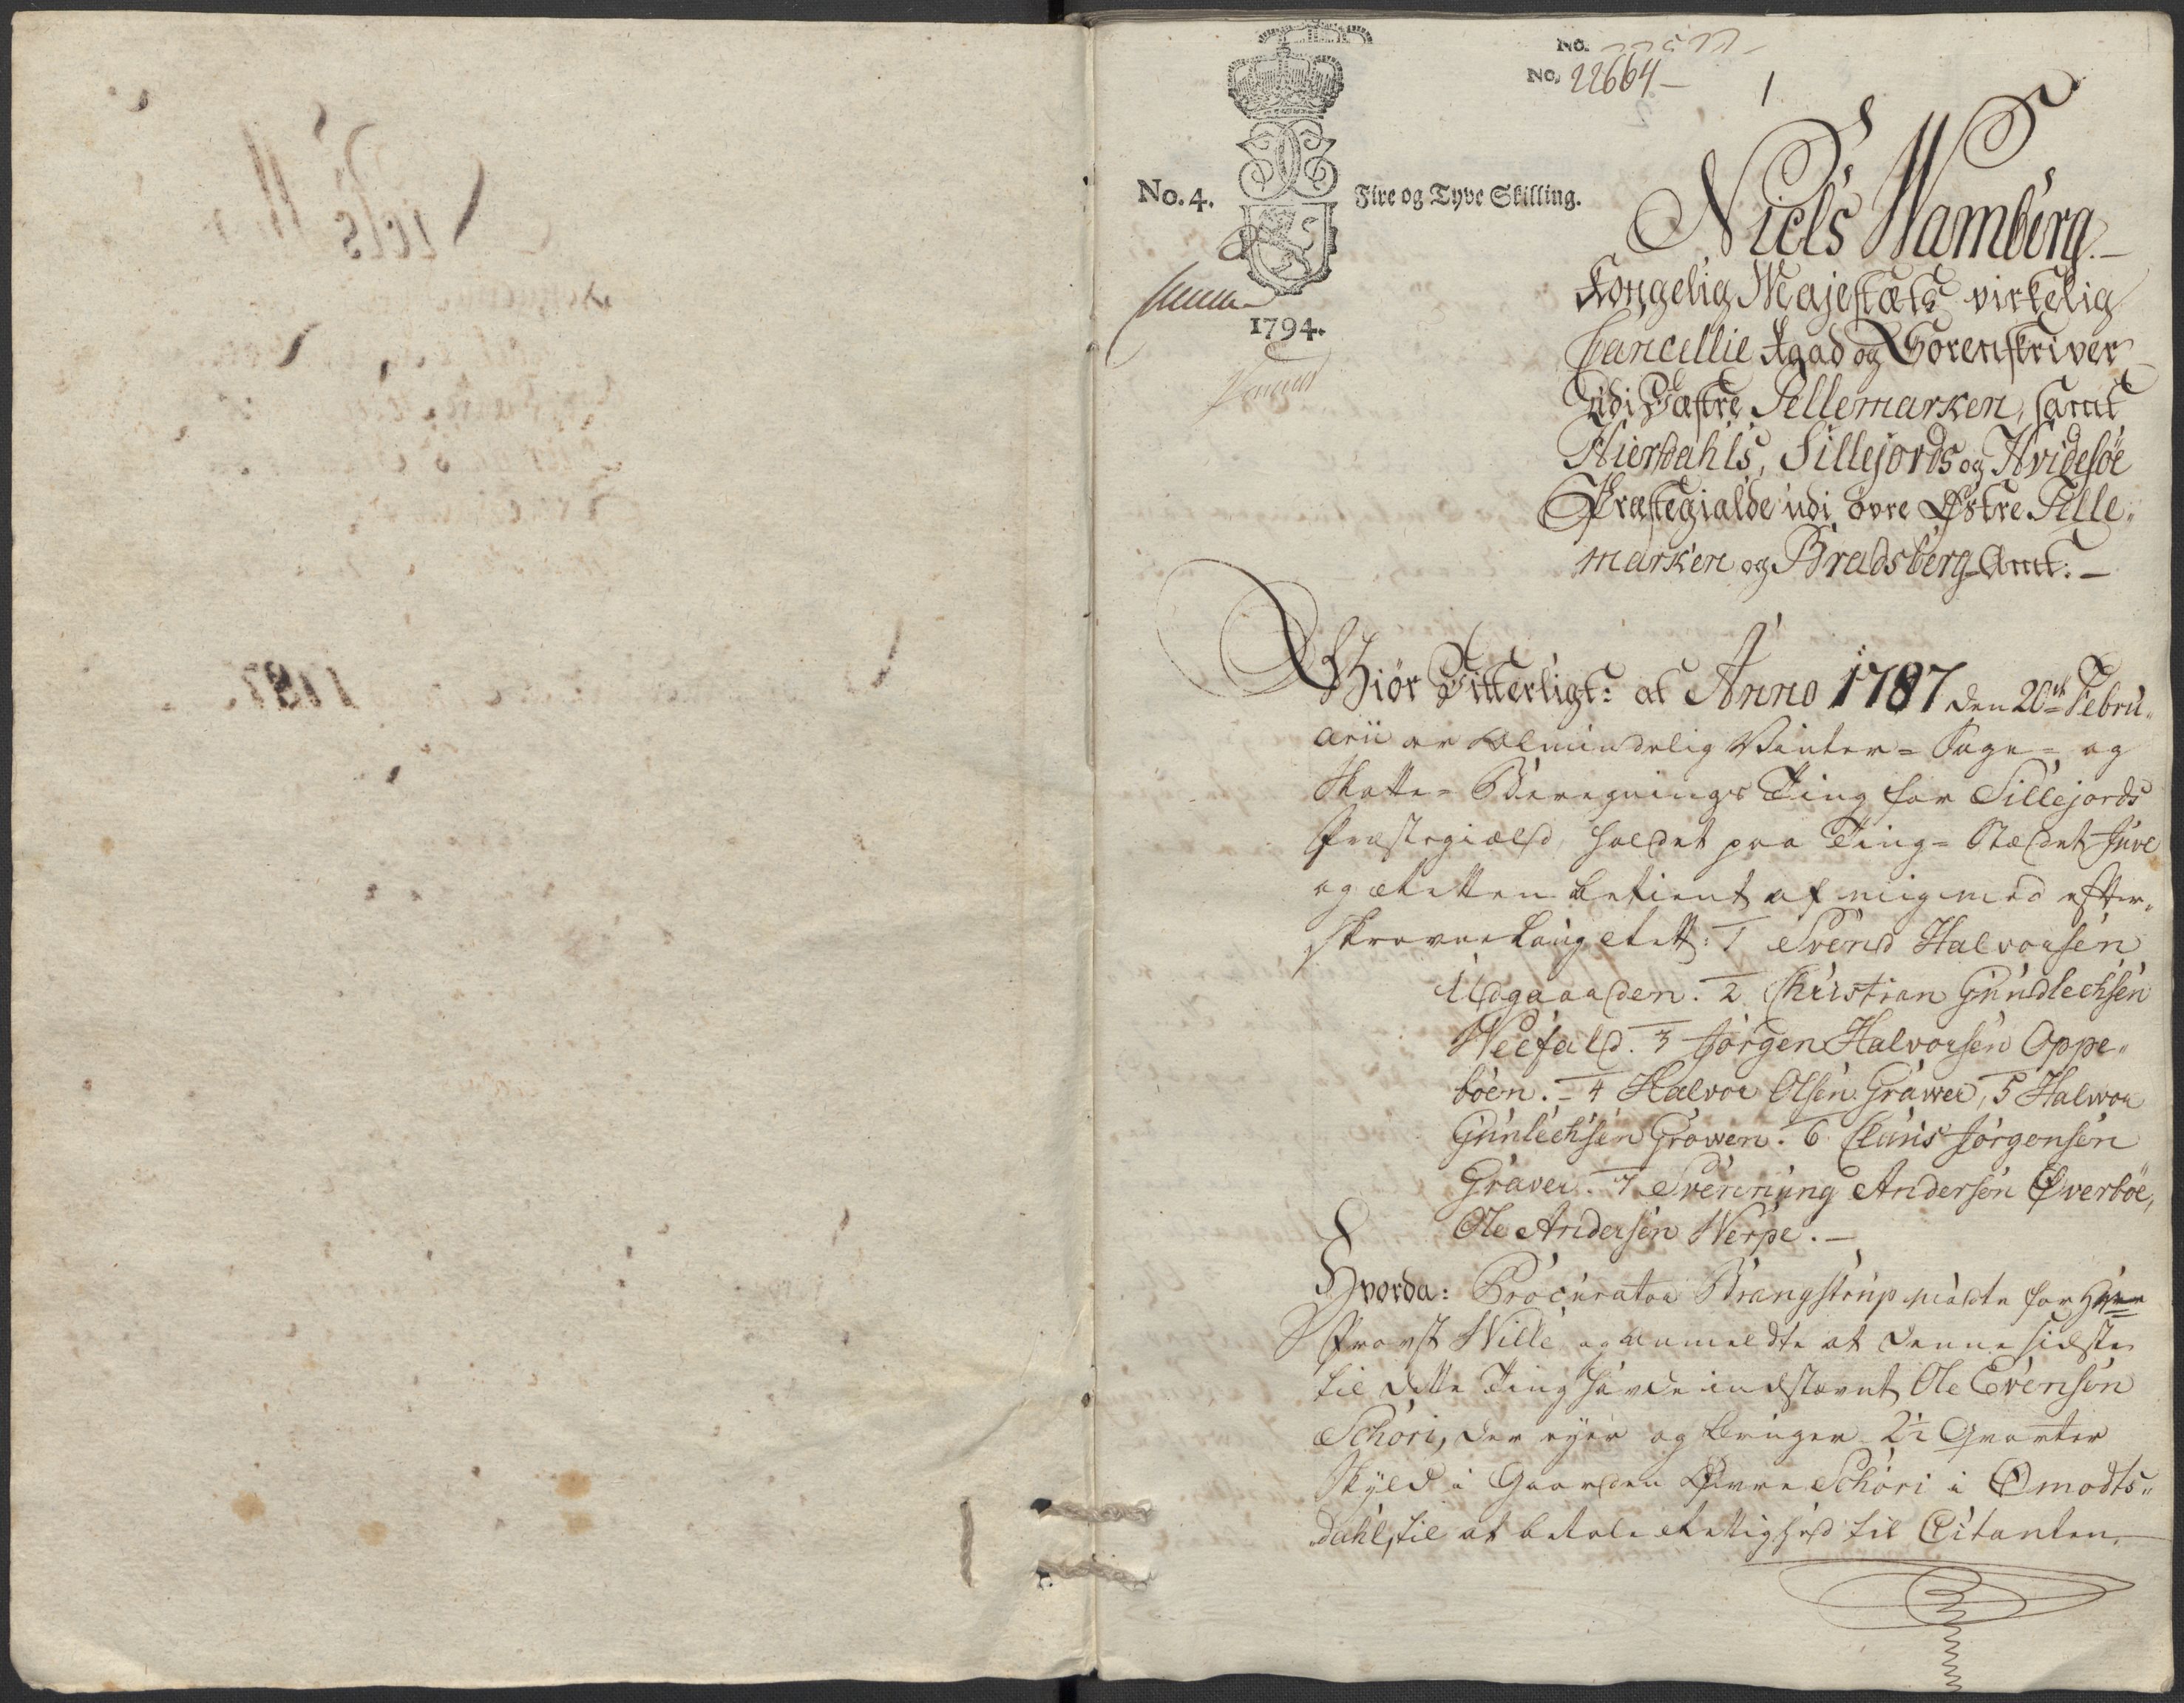 No. 22664 –
1
No. 4.
Fire og Tyve Skilling.
1794.
Niels Wamberg. –
Kongelig Majestæts virkelig
Cancellie Raad og Sorenskriver
udi Væstre Tellemarken, samt
Hierdahls, Sillejords og Hvidesöe
Præstegialde udi övre Østre Telle„
marken og Bradsberg Amt: –
Giör Vitterligt: at Anno 1787 den 20de Febru„
arii er Almindelig Vinter= Sage= og
Skatte= Beregnings Ting for Sillejords
Præstegiæld, holdet paa Ting= Stædet Juve
og Retten betient af mig med efter„
skrevne Laug Rett: 1 Svend Halvorsen
Udgaarden. 2 Christian Gundlechsen
Veefald. 3 Jörgen Halvorsen Oppe„
böen. = 4 Halvor Olsen Graver, 5 Halvor
Gunlechsen Groven. 6 Claus Jörgensen
Graver. 7 Svennung Andersen Øverböe,
Ole Andersen Verpe. –
Hvorda: Procurator Strangstrup mödte for Herr
Provst Wille og anmeldte at denne sidste
til dette Ting havde indstævnt Ole Evensön
Schori, der ejer og bruger 2½ Qvarter
Skyld i Gaarden Øvre Schori i Omodts„
dahl, til at betale Rettighed til Citanten.